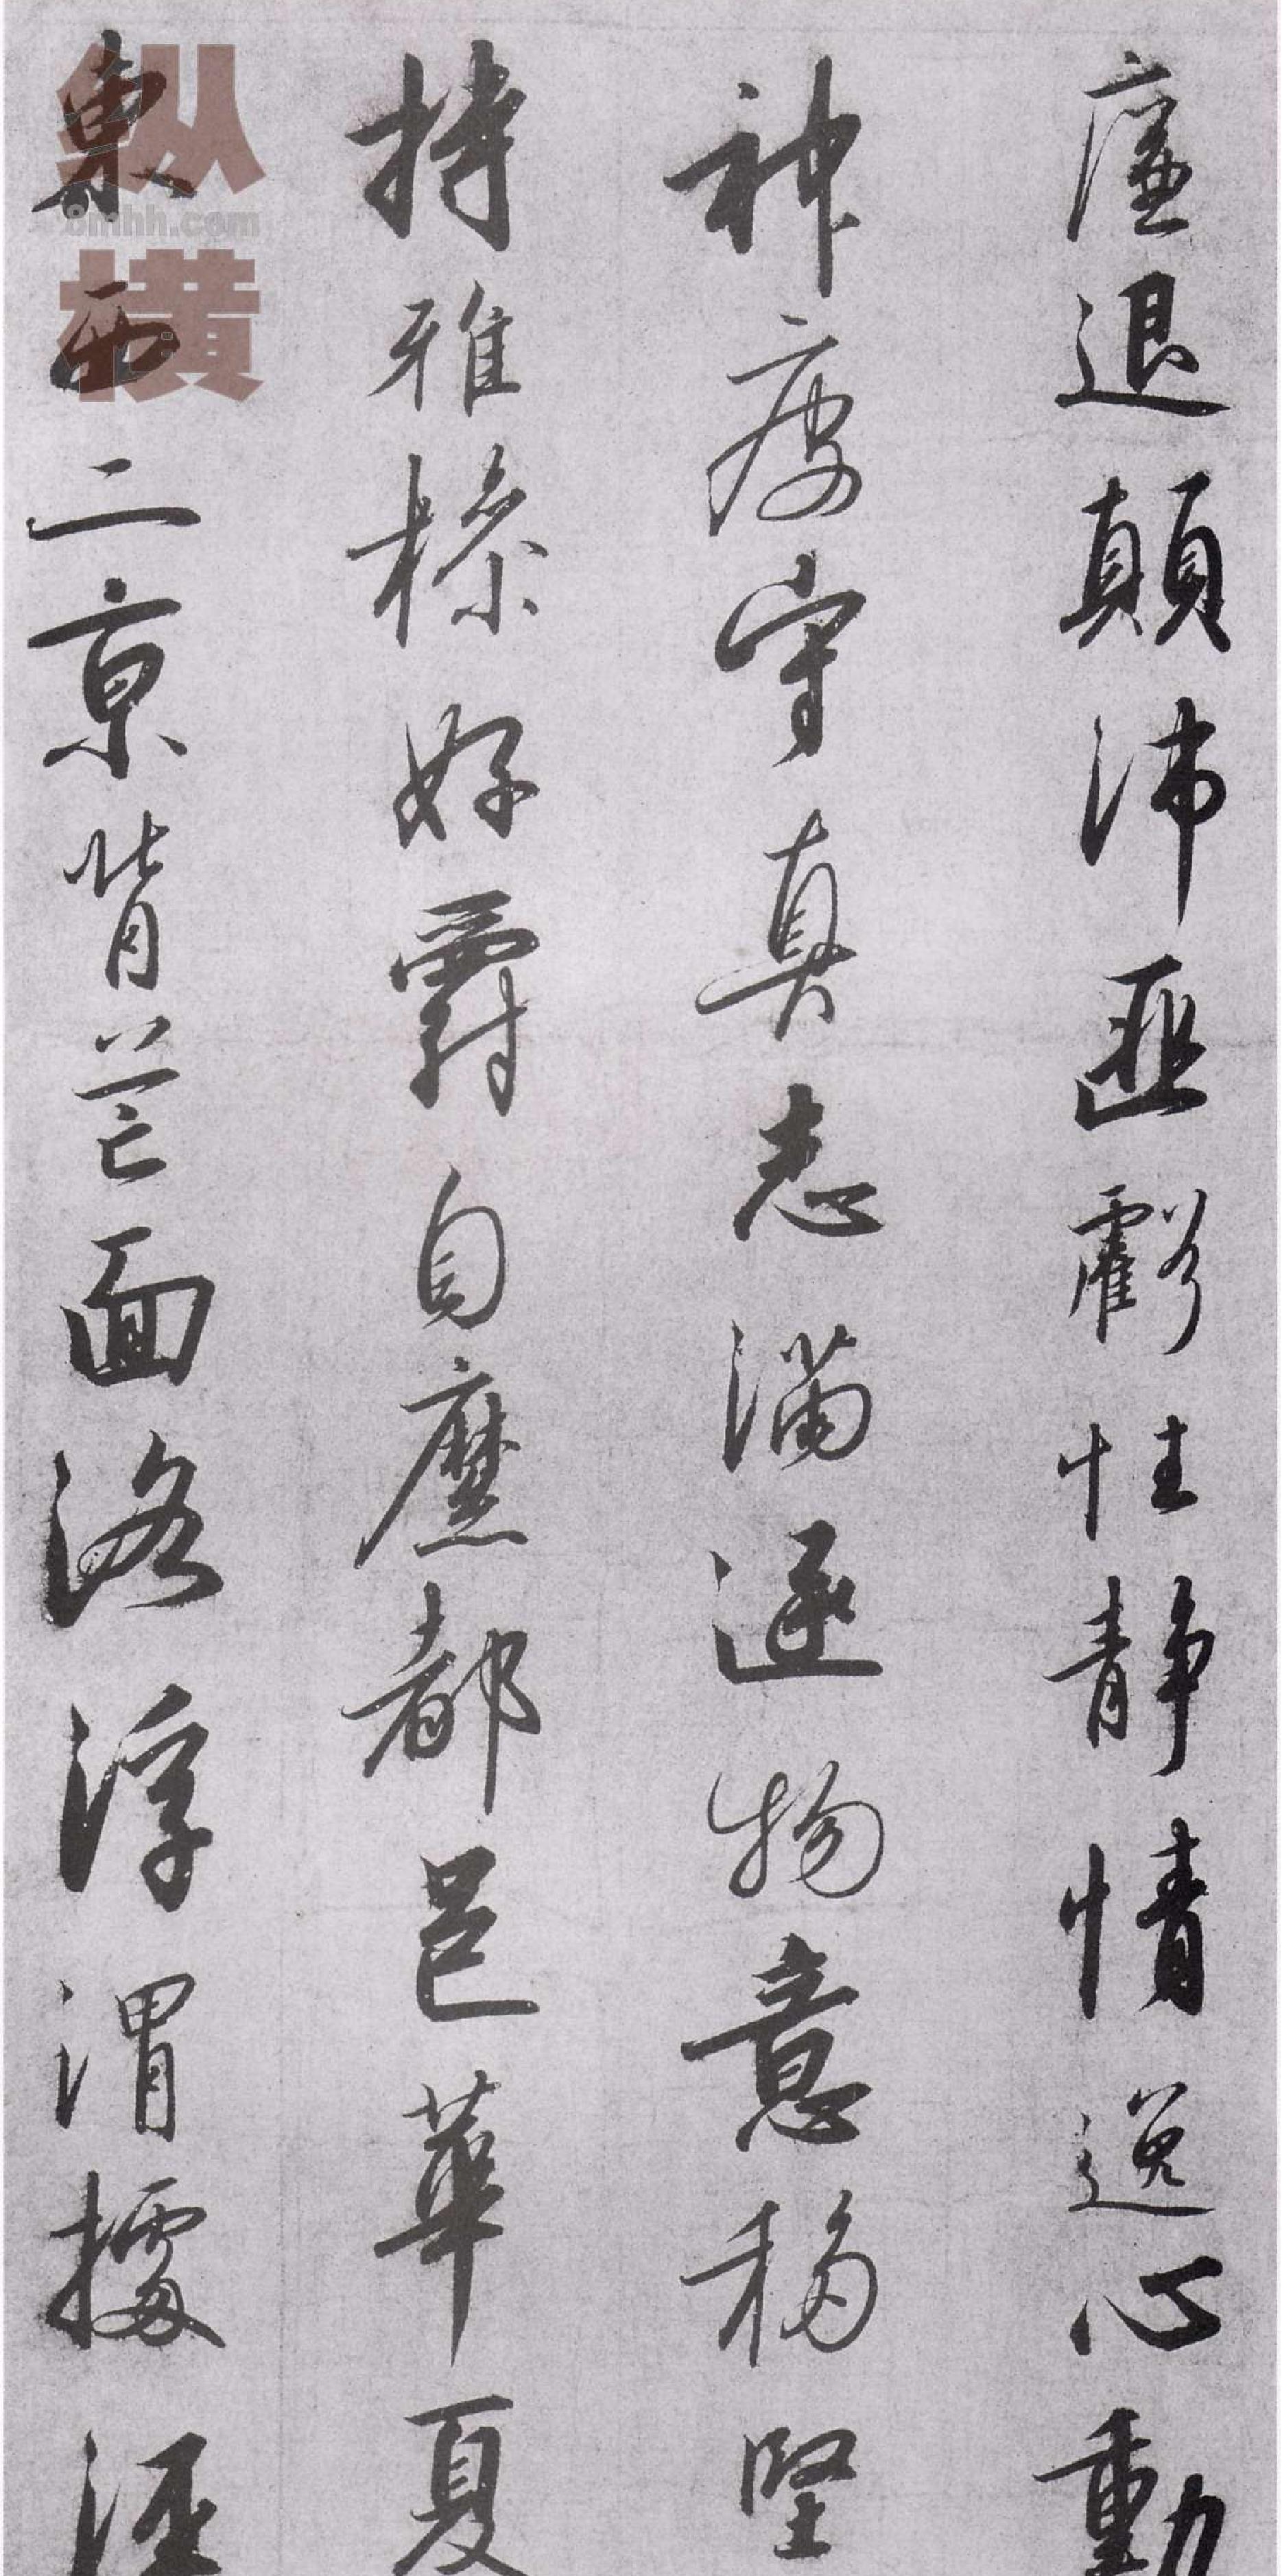 廉退顛沛匪虧性靜情逸心動
神疲守真志滿逐物意移堅
持雅操好爵自縻都邑華夏
東西二京背芒面洛浮渭據涇
纵横
8mhh.com